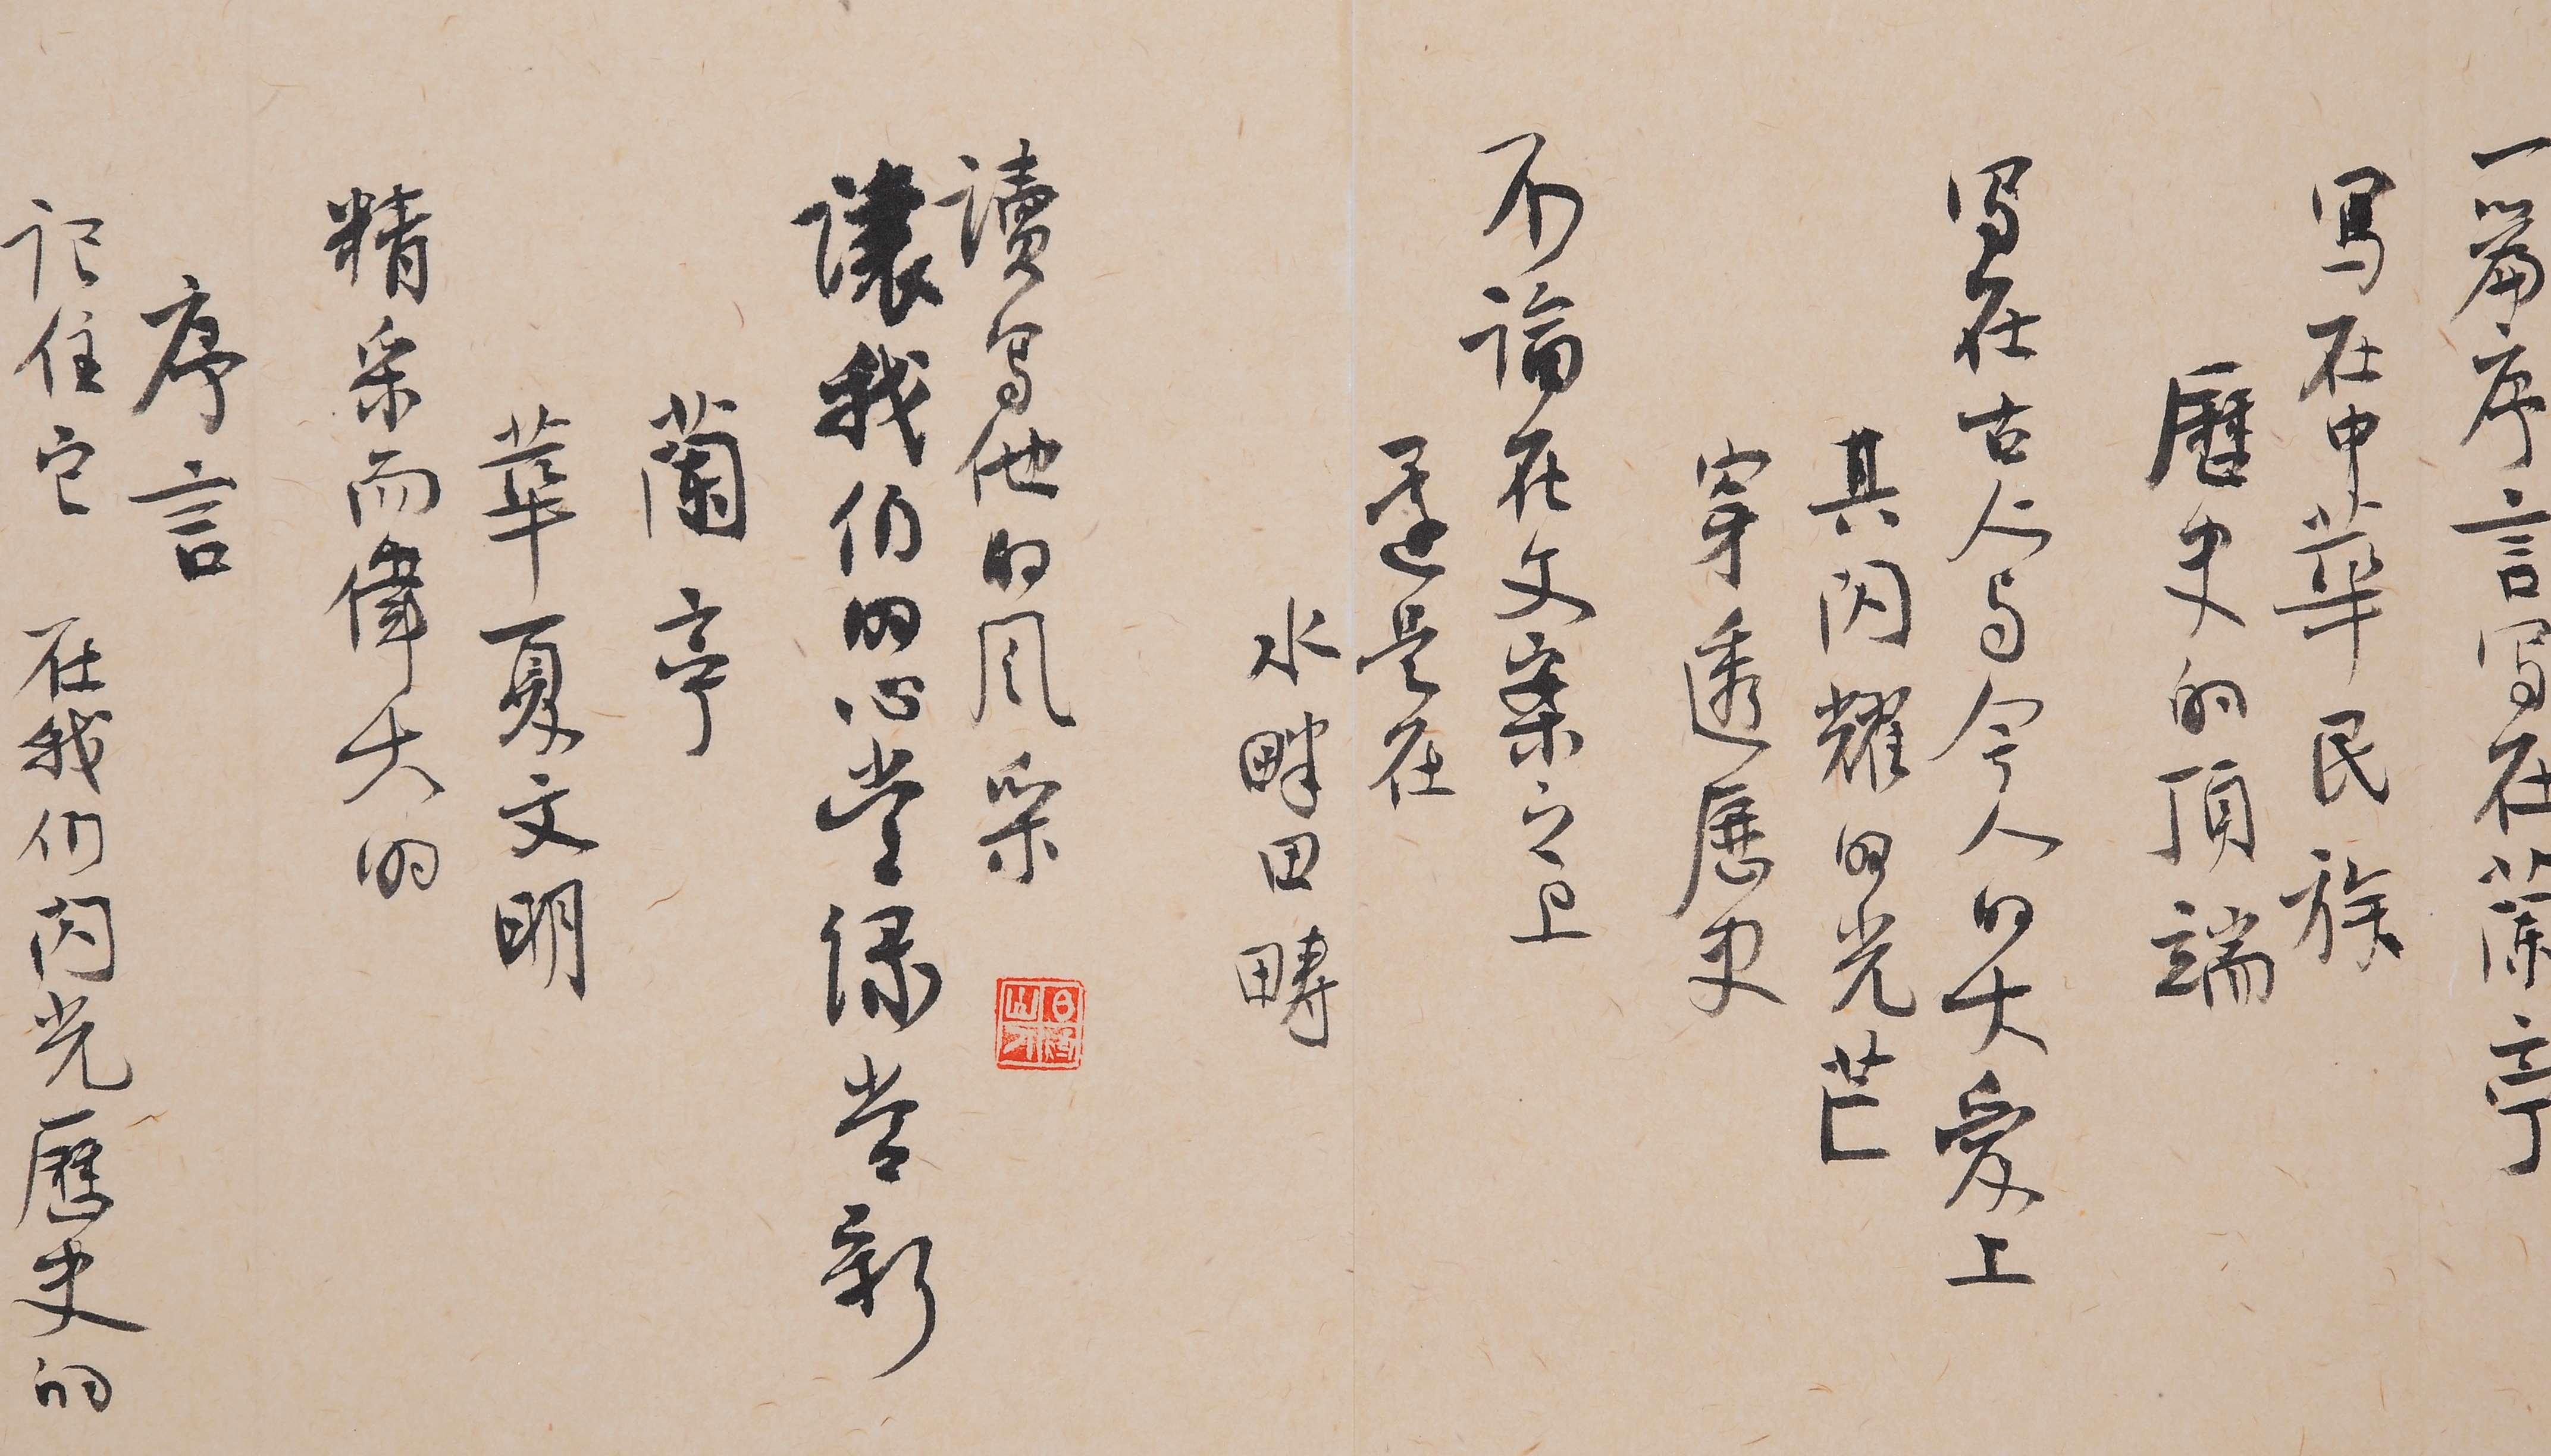 一篇序言寫在蘭亭
寫在中華民族
歷史的頂端
寫在古人与今人的大愛上
其閃耀的光芒
穿透歷史
不論在文案之上
還是在
水畔田疇
讀寫他的風采
讓我们的心堂保常新
蘭亭
華夏文明
精采而偉大的
序言
记住它 在我们闪光歷史的